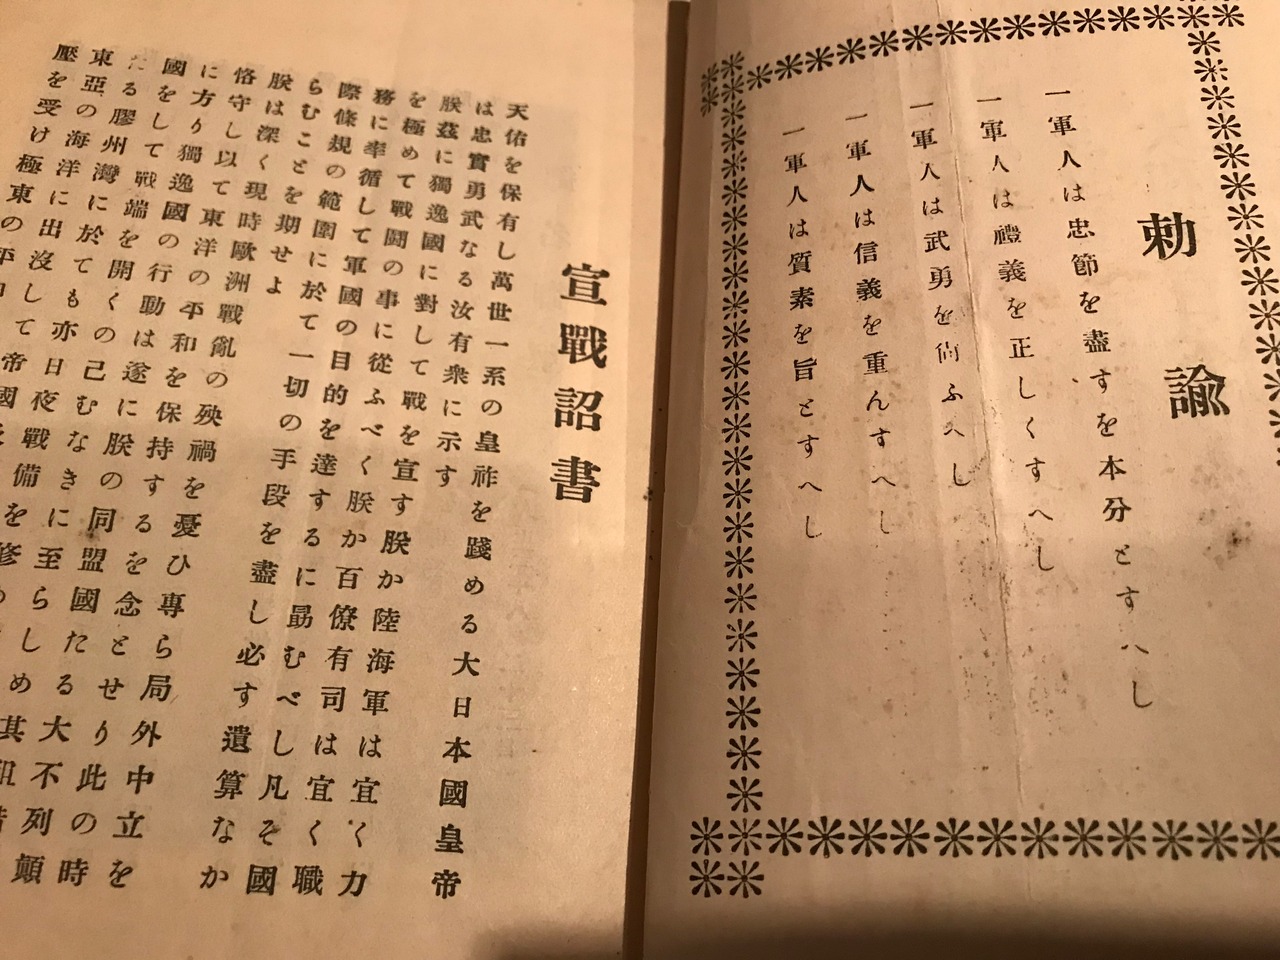 勅諭
一軍人は忠節を盡すを本分とすへし
一軍人は禮義を正しくすへし
一軍人は武勇を尚ふへし
一軍人は信義を重んすへし
一軍人は質素を旨とすへし
宣戰詔書
天佑を保有し萬世一系の皇祚を踐める大日本國皇帝
は忠實勇武なる汝有衆に示す
朕茲に獨逸國に對して戰を宣す朕か陸海軍は宜く力
を極めて戰闘の事に從ふべく朕か百僚有司は宜く職
務に率循して軍國の目的を達するに勗むべし凡そ國
際條規の範圍に於て一切の手段を盡し必す遺算なか
らむことを期せよ
朕は深く現時歐洲戰亂の殃禍を憂ひ專ら局外中立を
恪守し以て東洋の平和を保持するを念とせり此の時
に方り獨逸國の行動は遂に朕の同盟國たる大不列顛
國をして戰端を開くの己むなきに至らしめ其租借
たる膠州灣に於ても亦日夜戰備を修
東亞の海洋に出沒して帝國
壓を受け極東の平